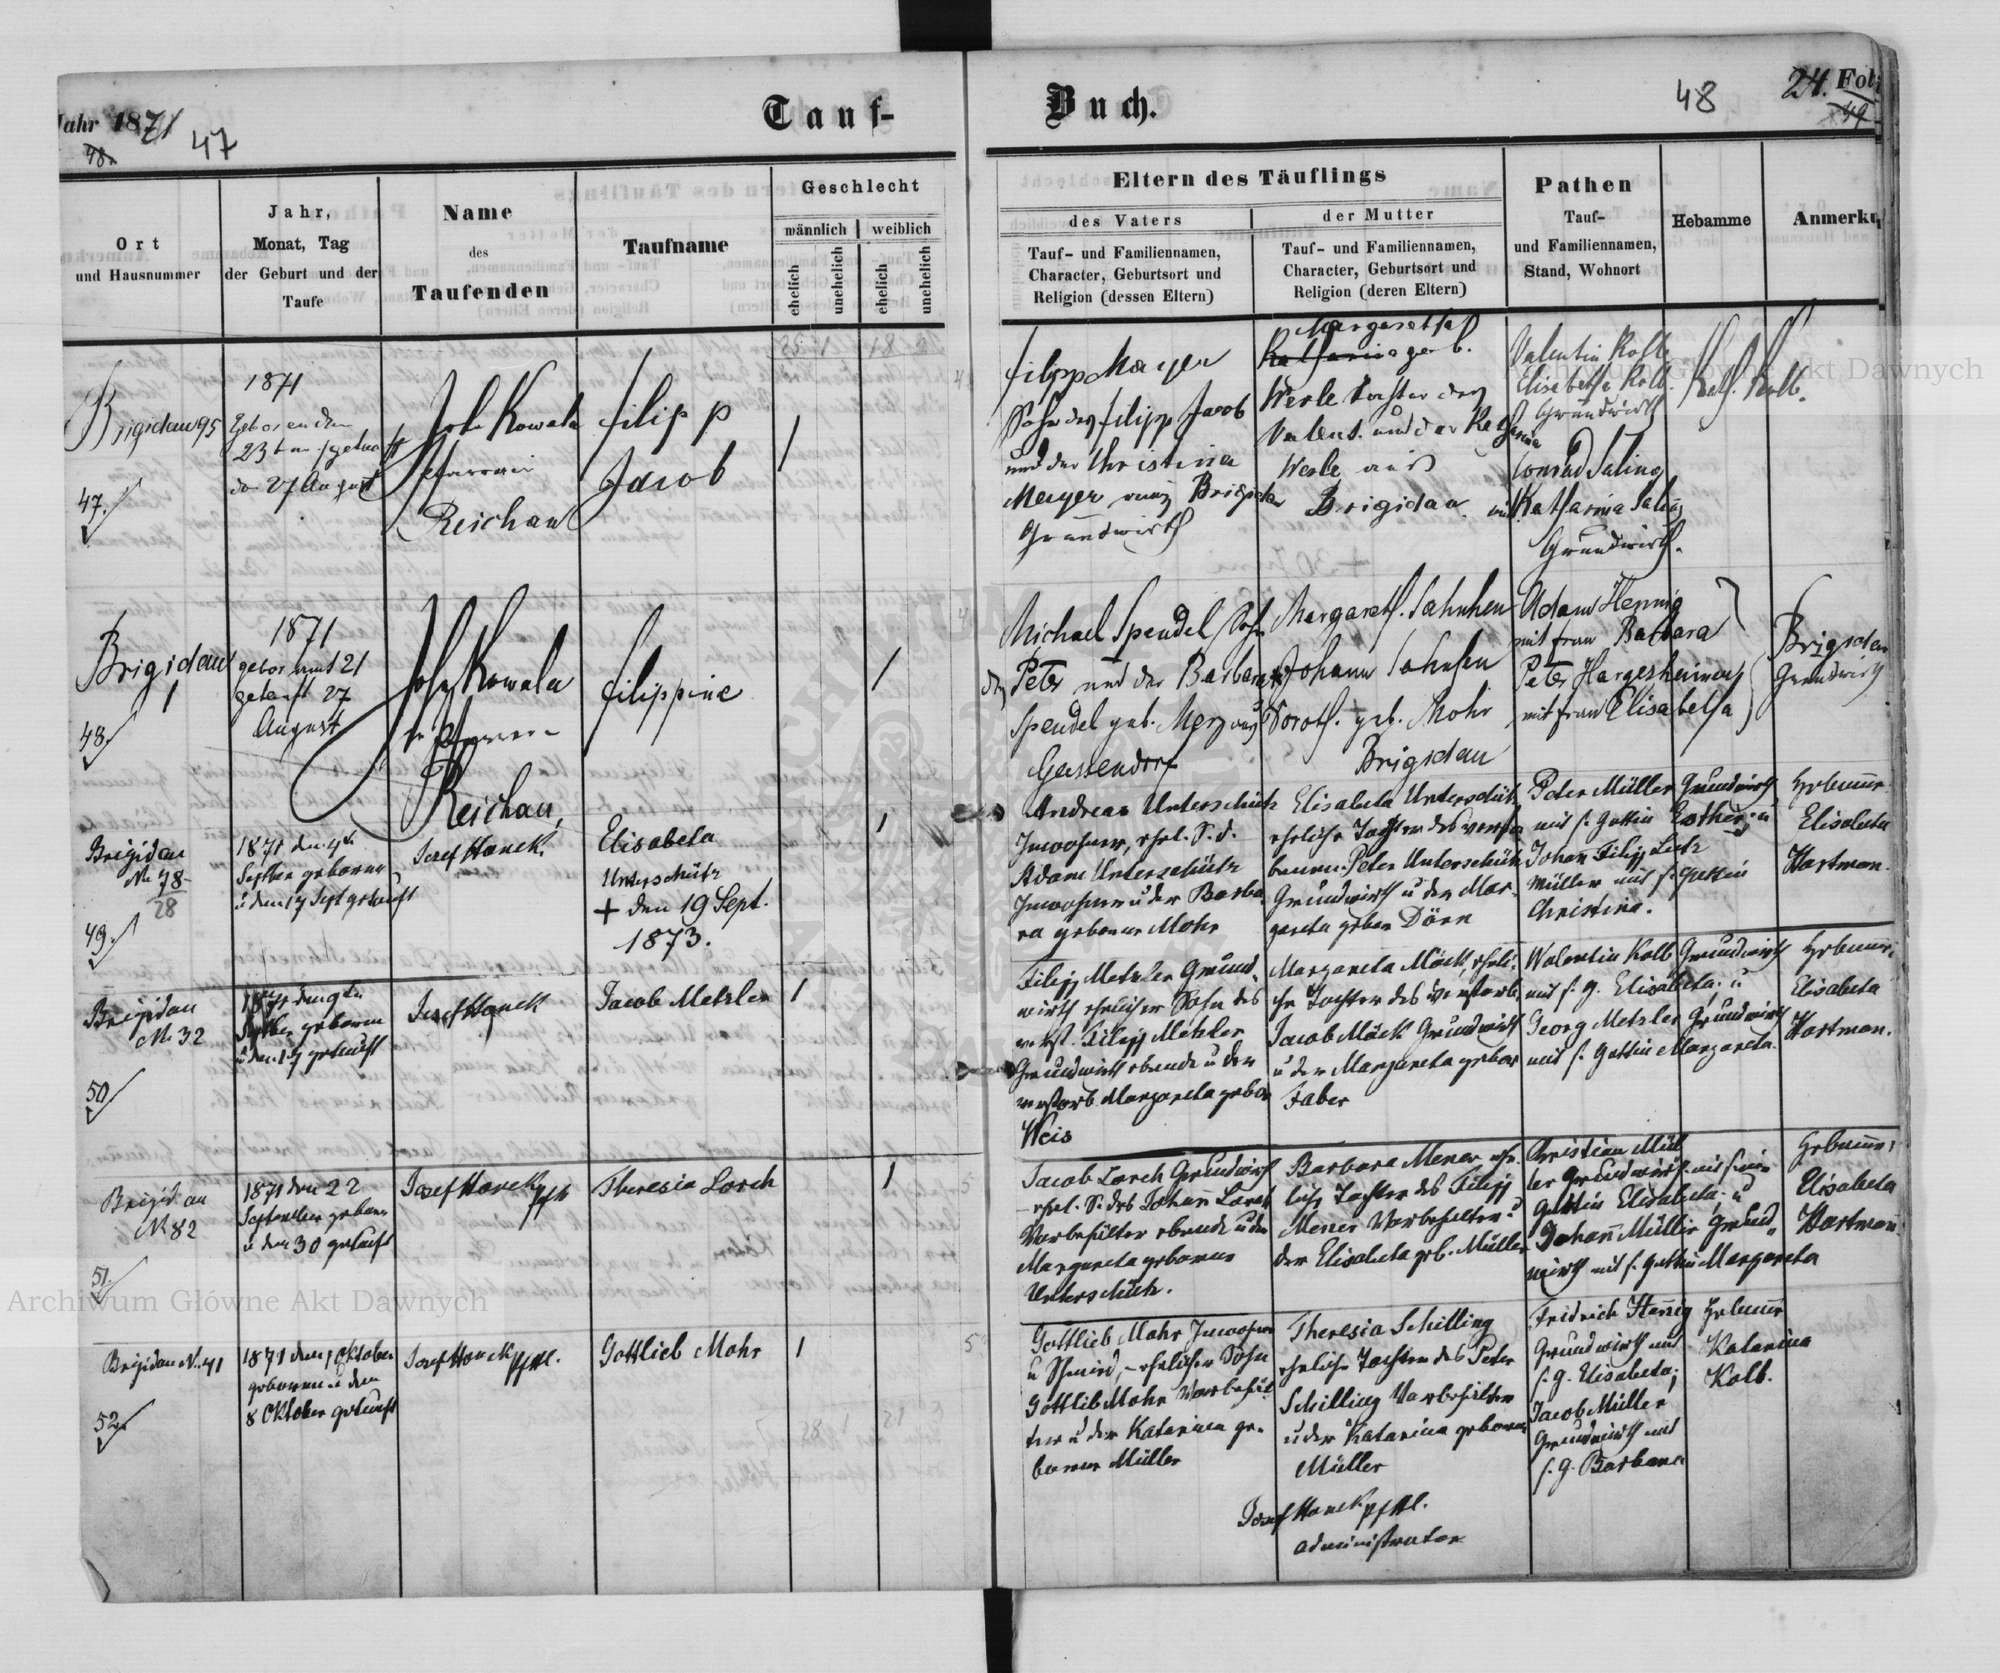 Jahr 1871
48.
47
Tauf-
Buch.
48
24. Foli
49
Ort
und Hausnummer
Jahr,
Monat, Tag
der Geburt und der
Taufe
Name
des
Taufenden
Taufname
Geschlecht
männlich
weiblich
ehelich
unehelich
ehelich
unehelich
Eltern des Täuflings
des Vaters
Tauf- und Familiennamen,
Character, Geburtsort und
Religion (dessen Eltern)
der Mutter
Tauf- und Familiennamen,
Character, Geburtsort und
Religion (deren Eltern)
Pathen
Tauf-
und Familiennamen,
Stand, Wohnort
Hebamme
Anmerku
Brigidau 95
47.
1871
Geboren den
23ten getauft
den 27 August
Joh. Kowala
Pfarrer in
Reichau
Filipp
Jacob
1
Filipp Mayer
Sohn des Filipp Jacob
und der Christina
Meyer aus Brigidau
Grundwirth
Margaretha
Katharina geb.
Werle Tochter des
Valent. und der Katharina
Werle aus
Brigidau
Valentin Kolb
Elisabetha Kolb
Grundwirth
Conrad Saling
mit Katharina Saling
Grundwirth.
Kath. Kolb.
Brigidau
1
48.
1871
geboren mit 21
getauft 27
August
Joh. Kowala
Reichau,
Filippine
1
Michael Spendel Sohn
des Peter und der Barbara
Spendel geb. Merz aus
Gassendorf
Margareth. Sahnhen
Johann Sahnhen
Doroth. geb. Mohr
Brigidau
Adam Hennig
mit frau Barbara
Peter Hargesheimer
mit frau Elisabetha
Brigidau
Grundwirth
Brigidau
No 78
28
49.
1871 den 4ten
Septber geboren
u den 17 Sept getauft
Josef Hanek.
Elisabeta
Unterschütz
+ den 19 Sept.
1873.
1
Andreas Unterschütz
Inwohner, ehel. S. d.
Adam Unterschütz
Inwohner u der Barba-
ra geborne Mohr
Elisabeta Unterschütz
eheliche Tochter des verstor
benen Peter Unterschütz
Grundwirth u der Mar-
gareta gebor Dörn
Peter Müller Grundwirth
mit s. Gattin Esther; u
Johann Filipp Lutz
Müller mit s. Gattin
Christina.
Hebamme
Elisabeta
Hartman.
Brigidau
No 32
50
1871 den 9ten
Septber geboren
u den 17 getauft
Josef Hanek
Jacob Metzler
1
Filipp Metzler Grund-
wirth ehelicher Sohn des
verst. Filipp Metzler
Grundwirth ebenda u der
verstorb. Margareta gebor
Weis
Margareta Möck, eheli-
che Tochter des verstorb.
Jacob Möck Grundwirth
u der Margareta gebor
Faber
Walentin Kolb Grundwirth
mit s. g. Elisabeta; u
Georg Metzler Grundwirth
mit s. Gattin Margareta.
Hebamme,
Elisabeta
Hartman.
Brigidau
No 82
51.
1871 den 22
September geboren
u den 30 getauft
Josef Hanek
Theresia Lorch
1
Jacob Lorch Grundwirth
ehel. S. des Johann Lorch
Vorbehälter ebenda u der
Margareta geborne
Unterschütz.
Barbara Mener ehe-
liche Tochter des Filipp
Mener Vorbehälter u
der Elisabeta geb. Müller
Christian Mül
ler Grundwirth mit seiner
Gattin Elisabeta; u
Johann Müller Grund-
wirth mit s. Gattin Margareta
Hebamme:
Elisabeta
Hartman.
Brigidau No. 41
52.
1871 den 1 Oktober
geboren u den
8 Oktober getauft
Josef Hanek
Gottlieb Mohr
1
Gottlieb Mohr Inwohner
u Schmied, ehelicher Sohn
Gottlib Mohr Vorbehäl
ter u der Katarina ge-
borne Müller
Theresia Schilling
eheliche Tochter des Peter
Schilling Vorbehälter
u der Katarina geborne
Müller
Fridrich Hennig
Grundwirth mit
s. g. Elisabeta;
Jacob Müller
Grundwirth mit
s. g. Barbara
Hebamme
Katarina
Kolb.
Josef Hanek
administrator
Archiwum Główne Akt Dawnych
Archiwum Główne Akt Dawnych